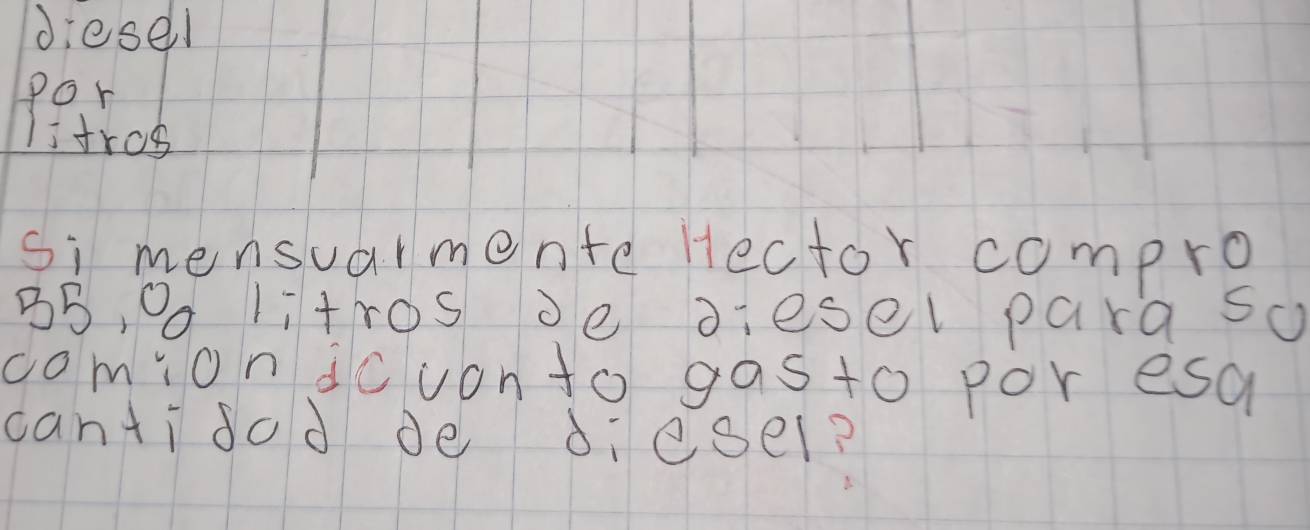 diesel
por
litros
Si mensualmente Hector compro
35,00 litros de diesel para so
comion ¿cuonto gasto por esa
cantidod de diesel?